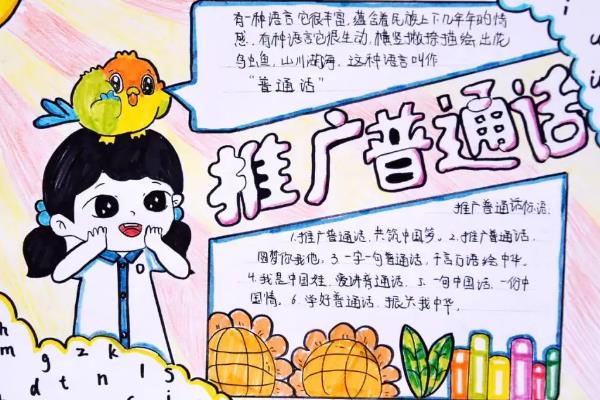 有一种语言它很丰富,蕴含着民族上下几千年的情
感,有种语言它很生动,横竖撇捺描绘出花
鸟虫鱼,山川湖海,这种语言叫作
“普通话”
推广普通话
推广普通话标语:
1.推广普通话,共筑中国梦。2.推广普通话,
圆梦你我他,3.一字一句普通话,千言万语绘中华。
4.我是中国娃,爱讲普通话,5.一句中国话,一份中
国情。6.学好普通话,振兴我中华。
i
u
h
m g z k
d t n l s